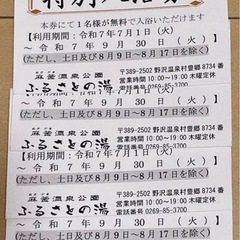 本券にて１名様が無料で入浴いただけます
【利用期間：令和７年７月１日（火）
～　令和７年９月３０日（火）】
（ただし、土日及び８月９日～８月１７日を除く）
麻釜温泉公園
ふるさとの湯
〒389-2502 野沢温泉村豊郷 8734 番
営業時間 10:00～19:00 木曜定休
電話番号 0269-85-3700
【利用期間：令和７年７月１日（火）
～　令和７年９月３０日（火）】
（ただし、土日及び８月９日～８月１７日を除く）
麻釜温泉公園
ふるさとの湯
〒389-2502 野沢温泉村豊郷 8734 番
営業時間 10:00～19:00 木曜定休
電話番号 0269-85-3700
～　令和７年９月３０日（火）】
（ただし、土日及び８月９日～８月１７日を除く）
麻釜温泉公園
ふるさとの湯
〒389-2502 野沢温泉村豊郷 8734 番
営業時間 10:00～19:00 木曜定休
電話番号 0269-85-3700